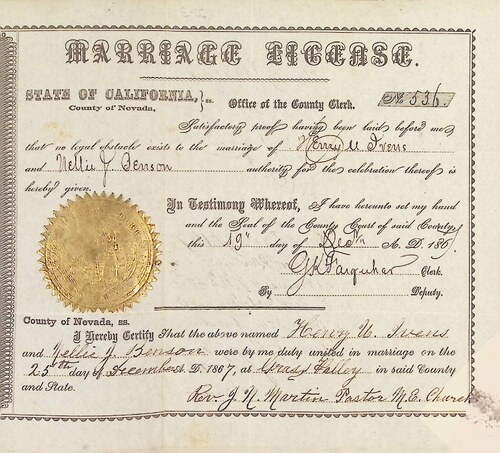 MARRIAGE LICENSE.
STATE OF CALIFORNIA, } ss. Office of the County Clerk. No 536.
County of Nevada,
Satisfactory proof having been laid before me
that no legal obstacle exists to the marriage of Henry U Ivens
and Nellie J Benson authority for the celebration thereof is
hereby given.
In Testimony Whereof, I have hereunto set my hand
and the Seal of the County Court of said County
this 19th day of Decr A. D. 1867
G K Farquhar Clerk.
By Deputy.
County of Nevada, ss.
I Hereby Certify That the above named Henry U. Ivens
and Nellie J. Benson were by me duly united in marriage on the
25th day of December A. D. 1867, at Grass Valley in said County
and State.
Rev. J. N. Martin Pastor M.E. Church